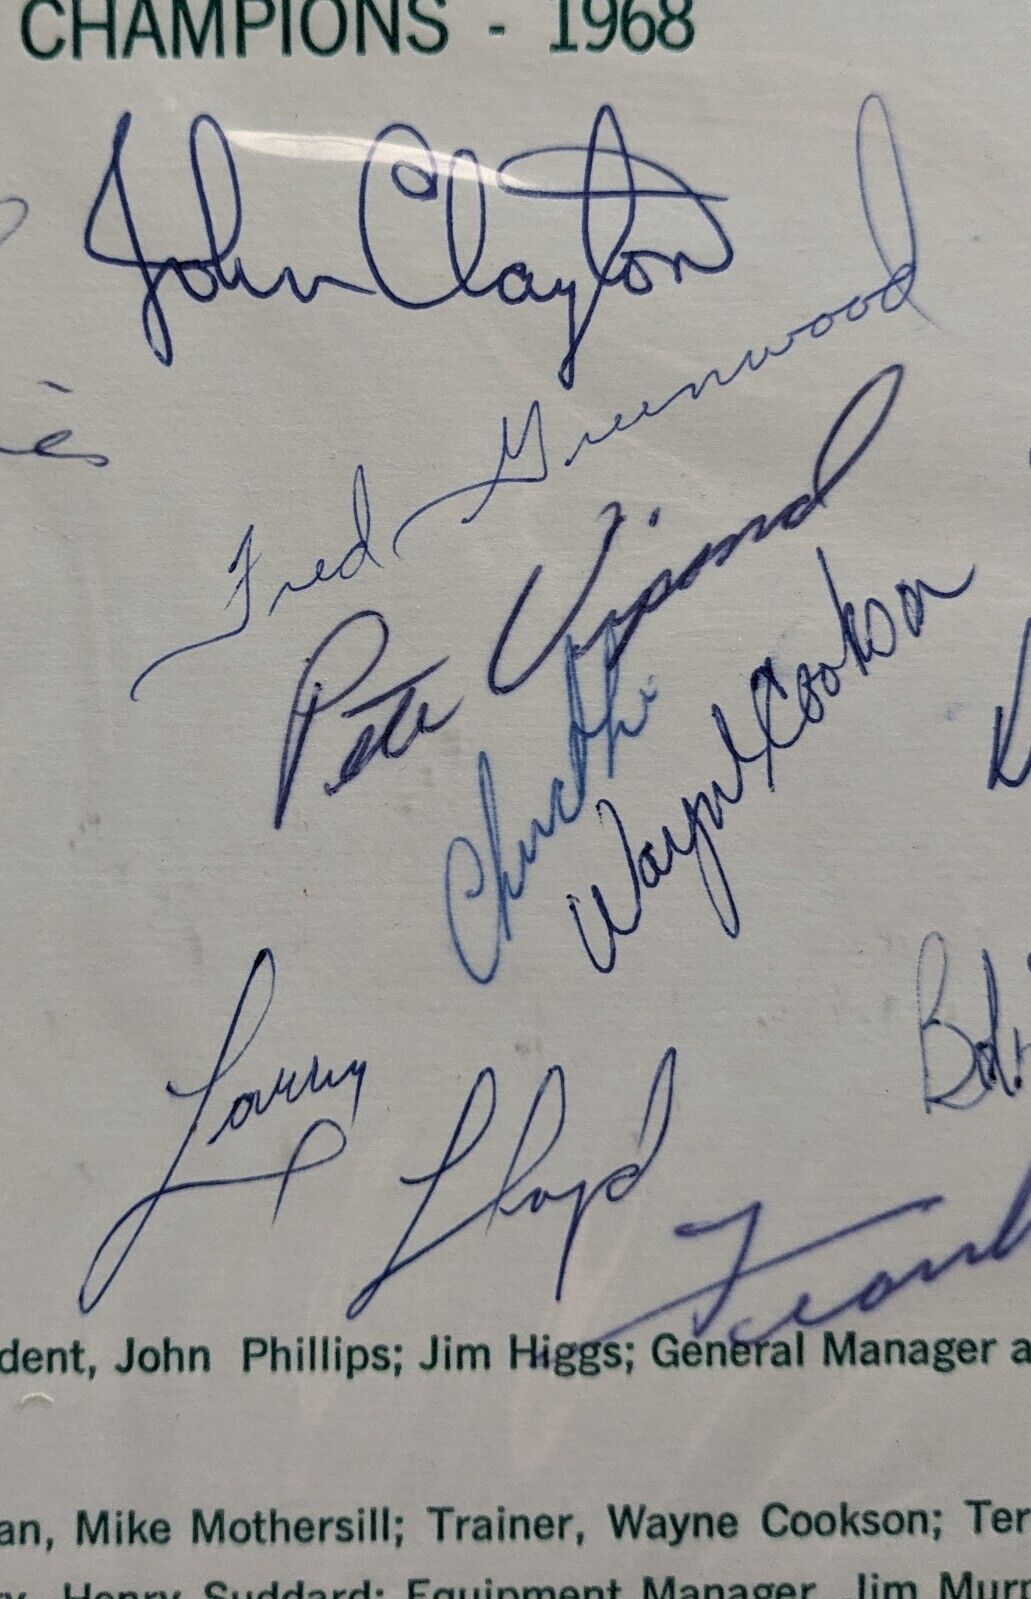 CHAMPIONS - 1968
John Clayton
Fred Greenwood
Pete Vipond
Chuck
Wayne Cookson
Larry Lloyd
dent, John Phillips; Jim Higgs; General Manager a
an, Mike Mothersill; Trainer, Wayne Cookson; Ter
Henry Suddard; Equipment Manager, Jim Murp